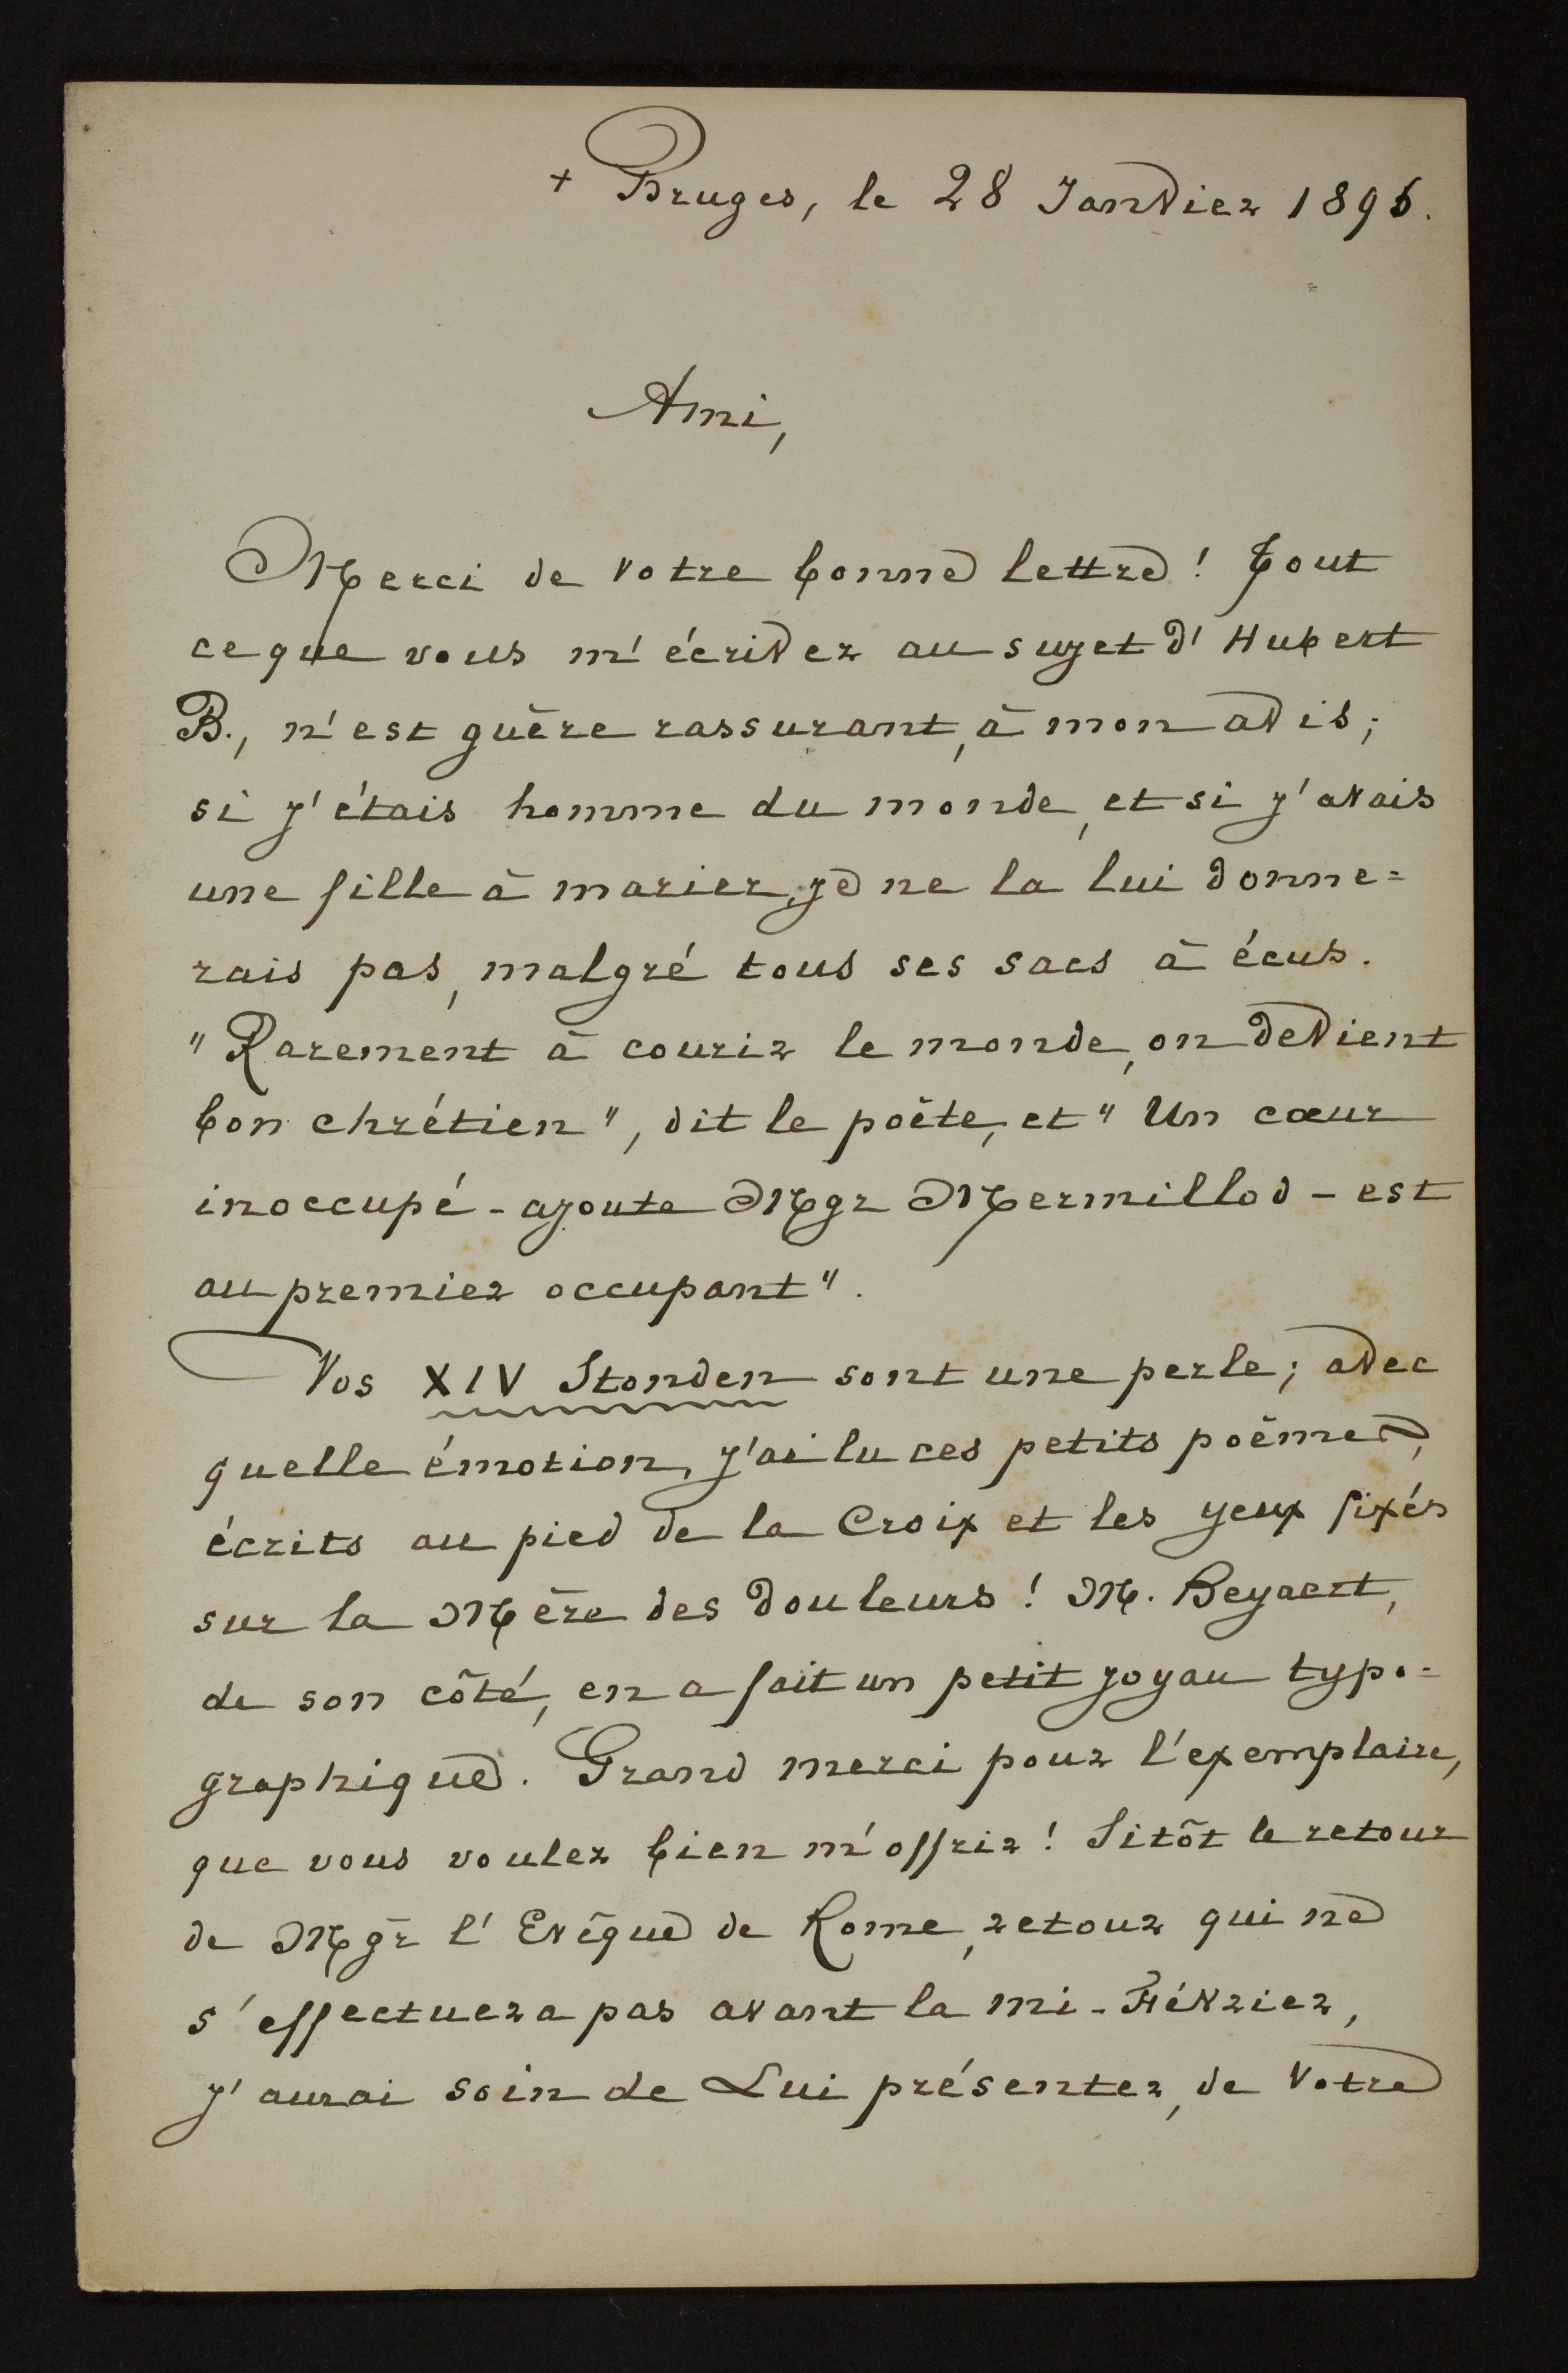 + Bruges, le 28 Janvier 1896.
Ami,
Merci de votre bonne lettre ! Tout
ce que vous m'écrivez au sujet d'Hubert
B., n'est guère rassurant, à mon avis ;
si j'étais homme du monde, et si j'avais
une fille à marier, je ne la lui donne=
rais pas, malgré tous ses sacs à écus.
"Rarement à courir le monde, on devient
bon chrétien", dit le poète, et "Un cœur
inoccupé - ajoute Mgr Mermillod - est
au premier occupant".
Vos XIV Stonden sont une perle ; avec
quelle émotion, j'ai lu ces petits poëmes,
écrits au pied de la Croix et les yeux fixés
sur la Mère des Douleurs ! M. Beyaert,
de son côté, en a fait un petit joyau typo=
graphique. Grand merci pour l'exemplaire,
que vous voulez bien m'offrir ! Sitôt le retour
de Mgr l'Evêque de Rome, retour qui ne
s'effectuera pas avant la mi-Février,
j'aurai soin de Lui présenter, de votre